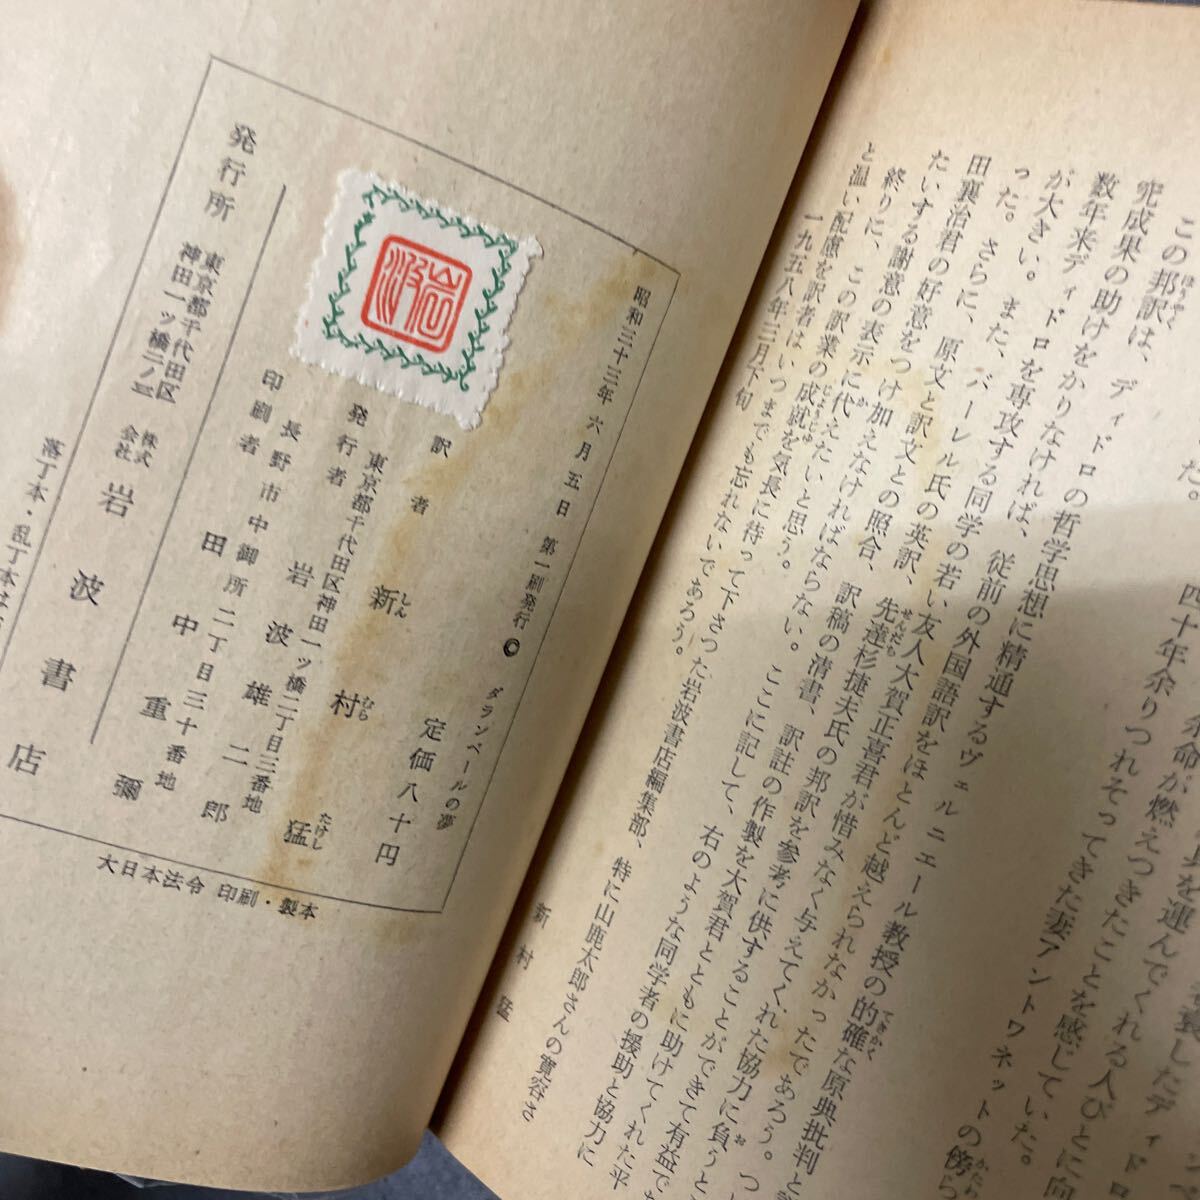 だ。
四十年余りつれそってきた妻アントワネットの傍ら
余命が燃えつきたことを感じていた。
身を運んでくれる人びとに向
この邦訳は、ディドロの哲学思想に精通するヴェルニエール教授の的確な原典批判と
究成果の助けをかりなければ、従前の外国語訳をほとんど越えられなかったであろう。
数年来ディドロを専攻する同学の若い友人大賀正喜君が惜みなく与えてくれた協力に負うと
が大きい。また、バーレル氏の英訳、先達杉捷夫氏の邦訳を参考に供することができて有益で
った。さらに、原文と訳文との照合、訳稿の清書、訳註の作製を大賀君とともに助けてくれた平
田襄治君の好意をつけ加えなければならない。ここに記して、右のような同学者の援助と協力に
たいする謝意の表示に代えたいと思う。
終りに、この訳業の成就を気長に待って下さった岩波書店編集部、特に山鹿太郎さんの寛容さ
と温い配慮を訳者は、いつまでも忘れないであろう。
一九五八年三月下旬
新村猛
昭和三十三年六月五日 第一刷発行 © ダランベールの夢
定価八十円
訳者 新村猛
しん むら たけし
東京都千代田区神田一ッ橋二丁目三番地
発行者 岩波雄二郎
長野市中御所二丁目三十番地
印刷者 田中重彌
岩波
発行所 東京都千代田区神田一ッ橋二ノ三 株式会社 岩波書店
大日本法令 印刷・製本
落丁本・乱丁本は